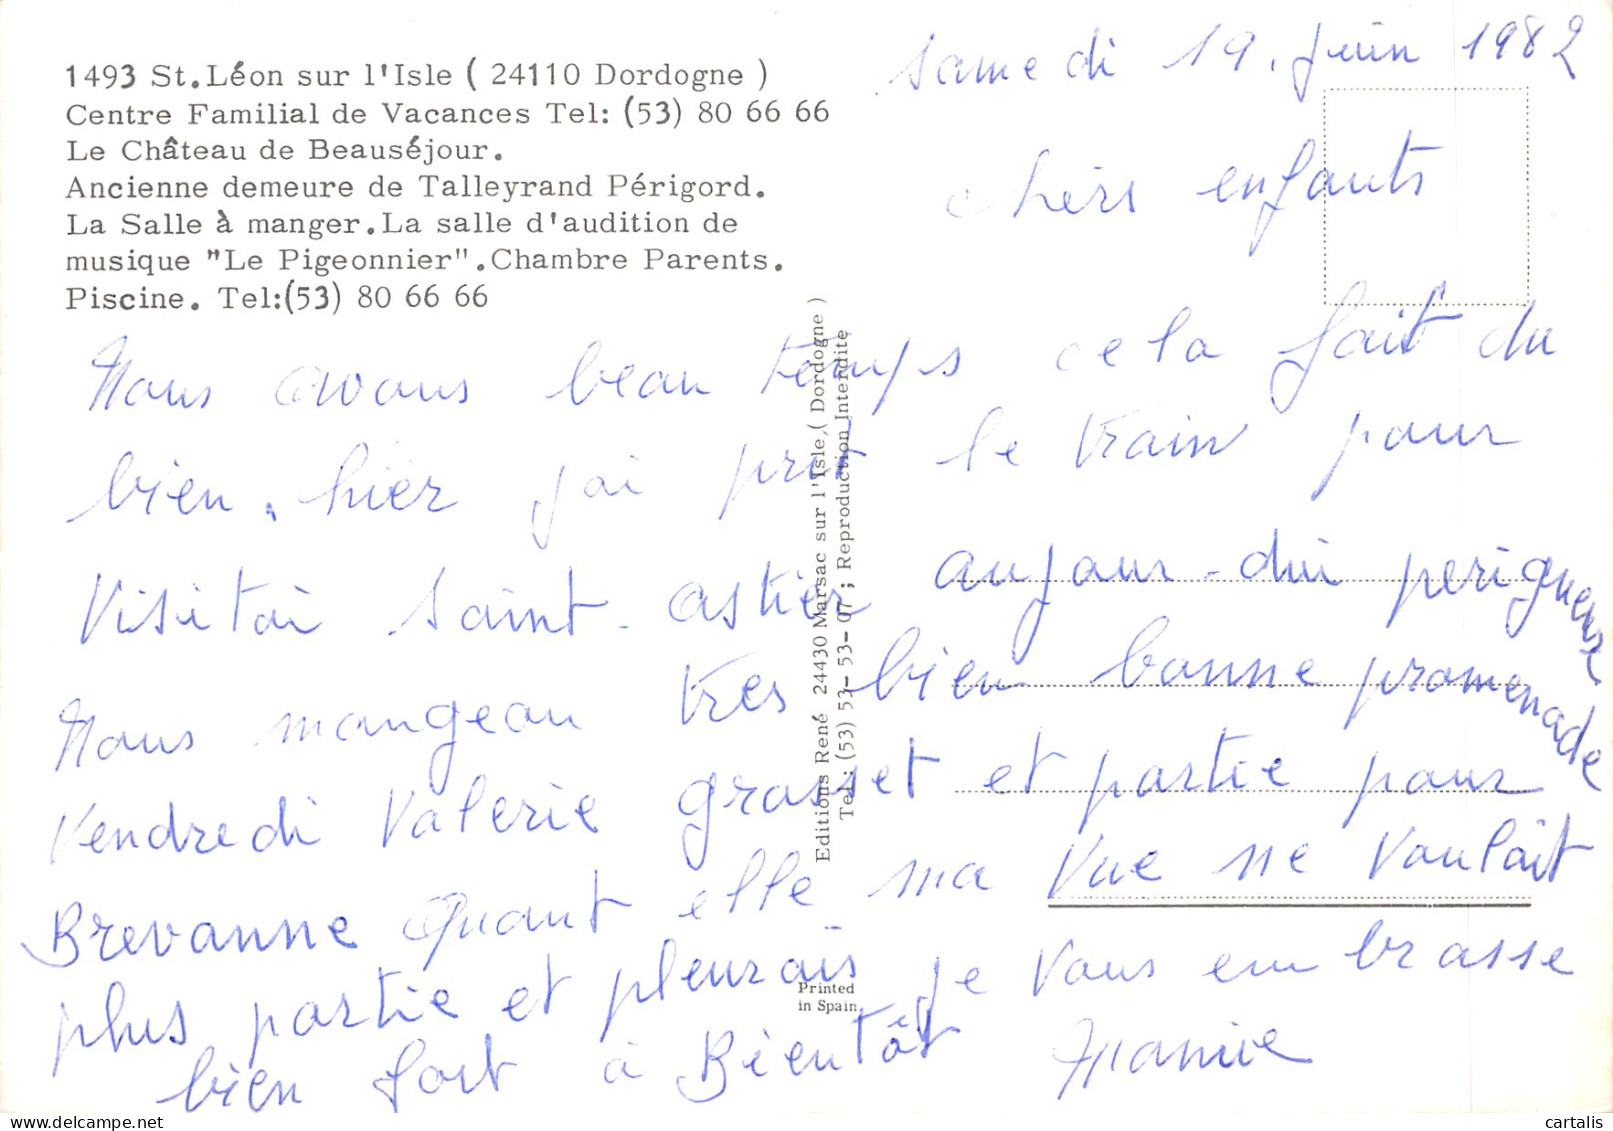 1493 St.Léon sur l'Isle ( 24110 Dordogne )
Centre Familial de Vacances Tel: (53) 80 66 66
Le Château de Beauséjour.
Ancienne demeure de Talleyrand Périgord.
La Salle à manger.La salle d'audition de
musique "Le Pigeonnier".Chambre Parents.
Piscine. Tel:(53) 80 66 66
Samedi 19. juin 1982
chers enfants
Nous avons beau temps cela fait du
bien. hier j ai prit le train pour
Visitai Saint-astier aujour-dui perigueux
Nous mangeau tres bien bonne promenade
Vendredi Valerie grasset et partie pour
Brevanne quant elle ma vue ne voulait
plus partie et pleurais je vous embrasse
bien fort à Bientôt
Editions René 24430 Marsac sur l'Isle ( Dordogne )
Tel : (53) 53- 53- 07 ; Reproduction Interdite
Printed
in Spain
cartalis